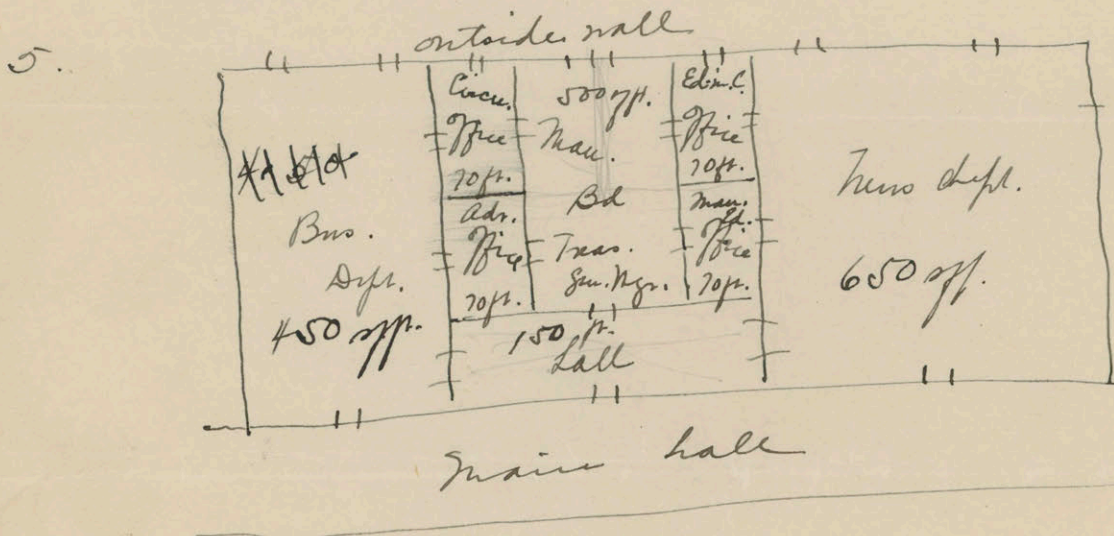 5.
outside wall
Bus.
Dept.
450 sqft.
Circu.
Office
70 ft.
Adv.
Office
70 ft.
500 sqft.
Man.
Bd
Treas.
Gen. Mgr.
Ed. in. C.
Office
70 ft.
Man.
Ed.
Office
70 ft.
150 ft.
hall
News dept.
650 sqft.
Main hall